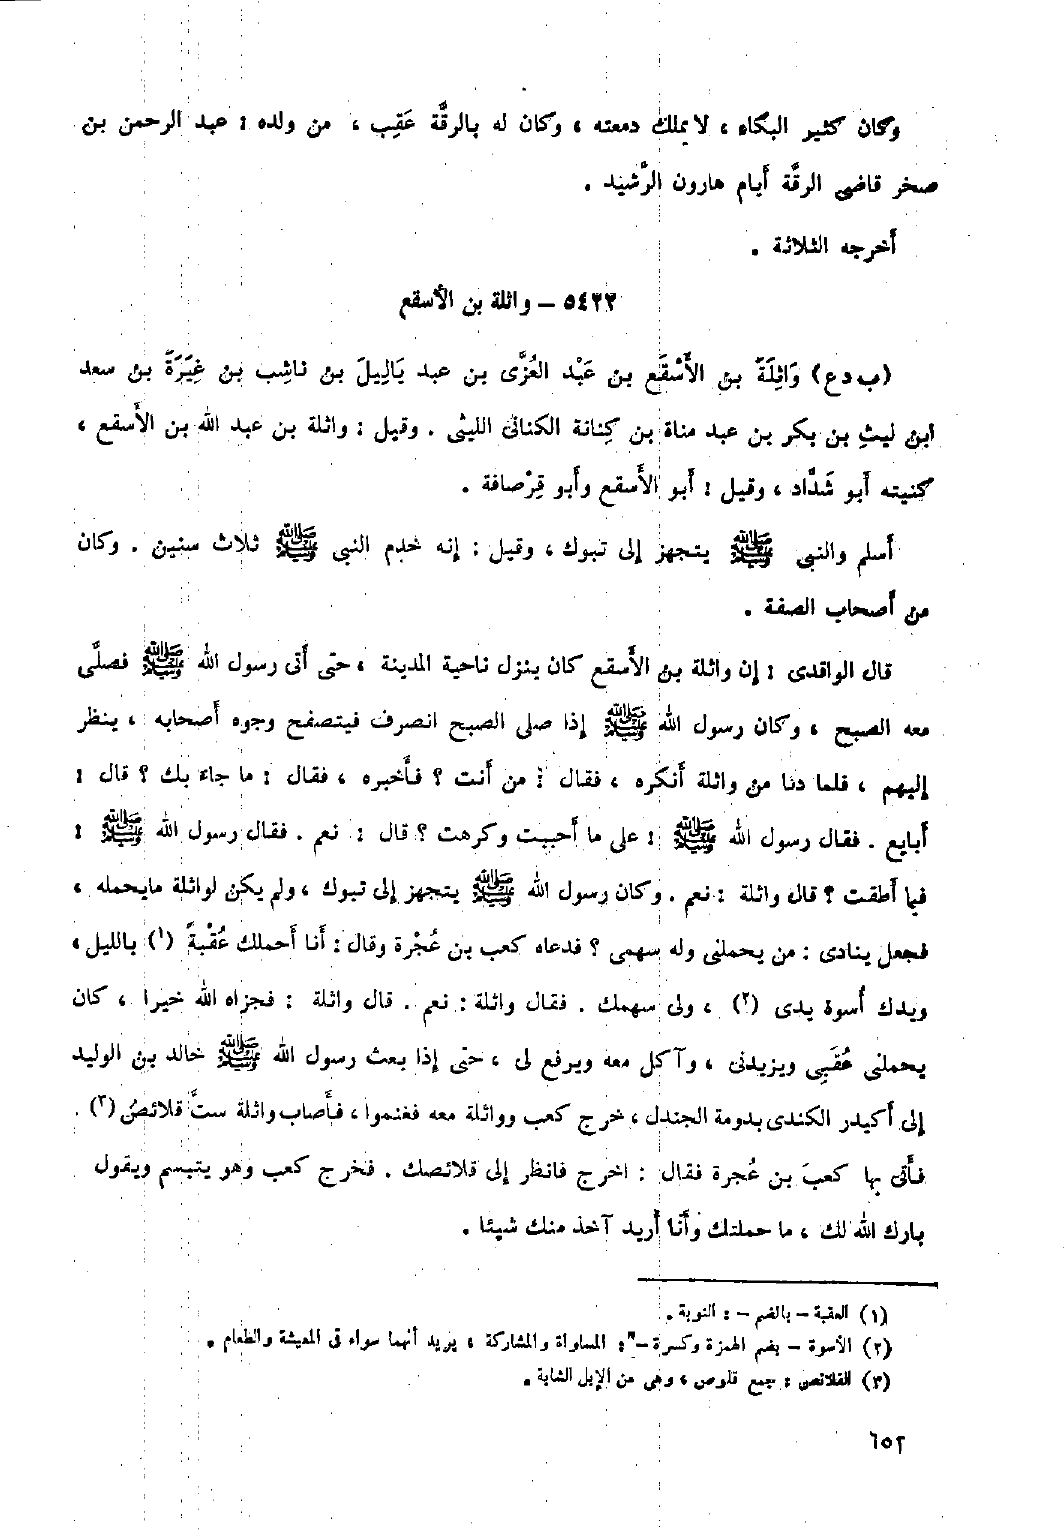 وكان كثير البكاء ، لا يملك دمعته ، وكان له بالرقَّة عَقِب ، من ولده : عبد الرحمن بن
صخر قاضى الرقَّة أيام هارون الرَّشيد .
أخرجه الثلاثة .
٥٤٢٣ – واثلة بن الأسقع
(ب د ع) وَاثِلَةُ بن الأَسْقَع بن عَبْد العُزَّى بن عبد يَالِيلَ بن ناشِب بن غِيَرَةَ بن سعد
ابن ليثِ بن بكر بن عبد مناة بن كِنانة الكنانى الليثى . وقيل : واثلة بن عبد الله بن الأسقع ،
كنيته أبو شَدَّاد ، وقيل : أبو الأَسقع وأبو قِرْصافة .
أسلم والنبى ﷺ يتجهز إلى تبوك ، وقيل : إنه خدم النبى ﷺ ثلاث سنين . وكان
من أصحاب الصفة .
قال الواقدى : إن واثلة بن الأَسقع كان ينزل ناحية المدينة ، حتى أَتى رسول الله ﷺ فصلَّى
معه الصبح ، وكان رسول الله ﷺ إذا صلى الصبح انصرف فيتصفح وجوه أصحابه ، ينظر
إليهم ، فلما دنا من واثلة أنكره ، فقال : من أنت ؟ فأخبره ، فقال : ما جاء بك ؟ قال :
أبايع . فقال رسول الله ﷺ : على ما أحببت وكرهت ؟ قال : نعم . فقال رسول الله ﷺ :
فيما أطقت ؟ قال واثلة : نعم . وكان رسول الله ﷺ يتجهز إلى تبوك ، ولم يكن لواثلة مايحمله ،
فجعل ينادى : من يحملنى وله سهمى ؟ فدعاه كعب بن عُجْرة وقال : أنا أحملك عُقْبةً (١) بالليل ،
ويدك أُسوة يدى (٢) ، ولى سهمك . فقال واثلة : نعم . قال واثلة : فجزاه الله خيرا ، كان
يحملنى عُقَبِى ويزيدنى ، وآكل معه ويرفع لى ، حتى إذا بعث رسول الله ﷺ خالد بن الوليد
إلى أكيدر الكندى بدومة الجندل ، خرج كعب وواثلة معه فغنموا ، فأصاب واثلة ستَّ قلائصَ (٣) .
فأَتى بها كعبَ بن عُجرة فقال : اخرج فانظر إلى قلائصك . فخرج كعب وهو يتبسم ويقول
بارك الله لك ، ما حملتك وأَنا أُريد آخذ منك شيئا .
(١) العقبة – بالضم – : النوبة .
(٢) الأسوة – بضم الهمزة وكسرة – : المساواة والمشاركة ، يريد أنهما سواء فى المعيشة والطعام .
(٣) القلائص : جمع قلوص ، وهى من الإبل الشابة .
٦٥٢